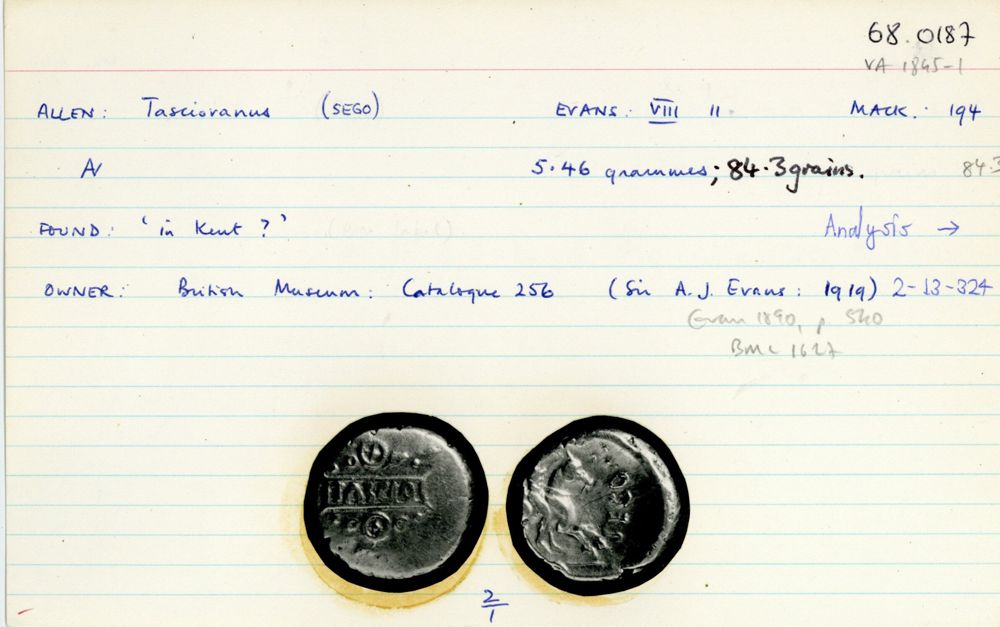 68.0187
VA 1845-1
ALLEN: Tasciovanus (SEGO) EVANS: VIII 11. MACK: 194
AV 5.46 grammes; 84.3 grains. 84.3
FOUND: 'in Kent ?' Analysis →
OWNER: British Museum: Catalogue 256 (Sir A.J. Evans: 1919) 2-13-324
Evans 1890, p 540
BMC 1627
TASCIO
SEGO
2/1